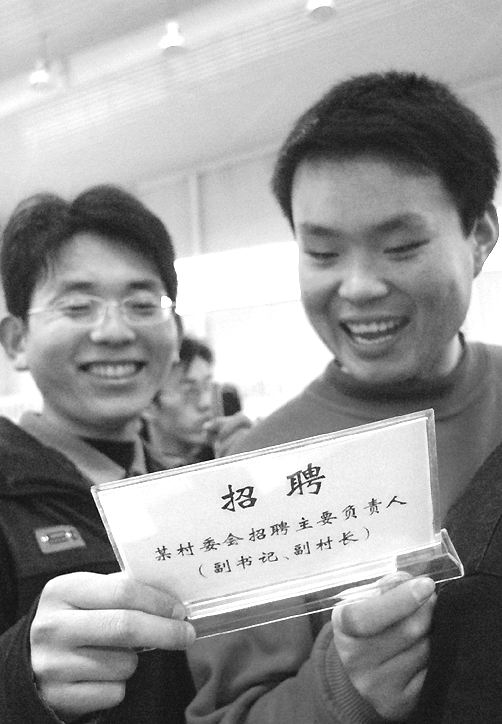 招聘
某村委会招聘主要负责人
（副书记、副村长）